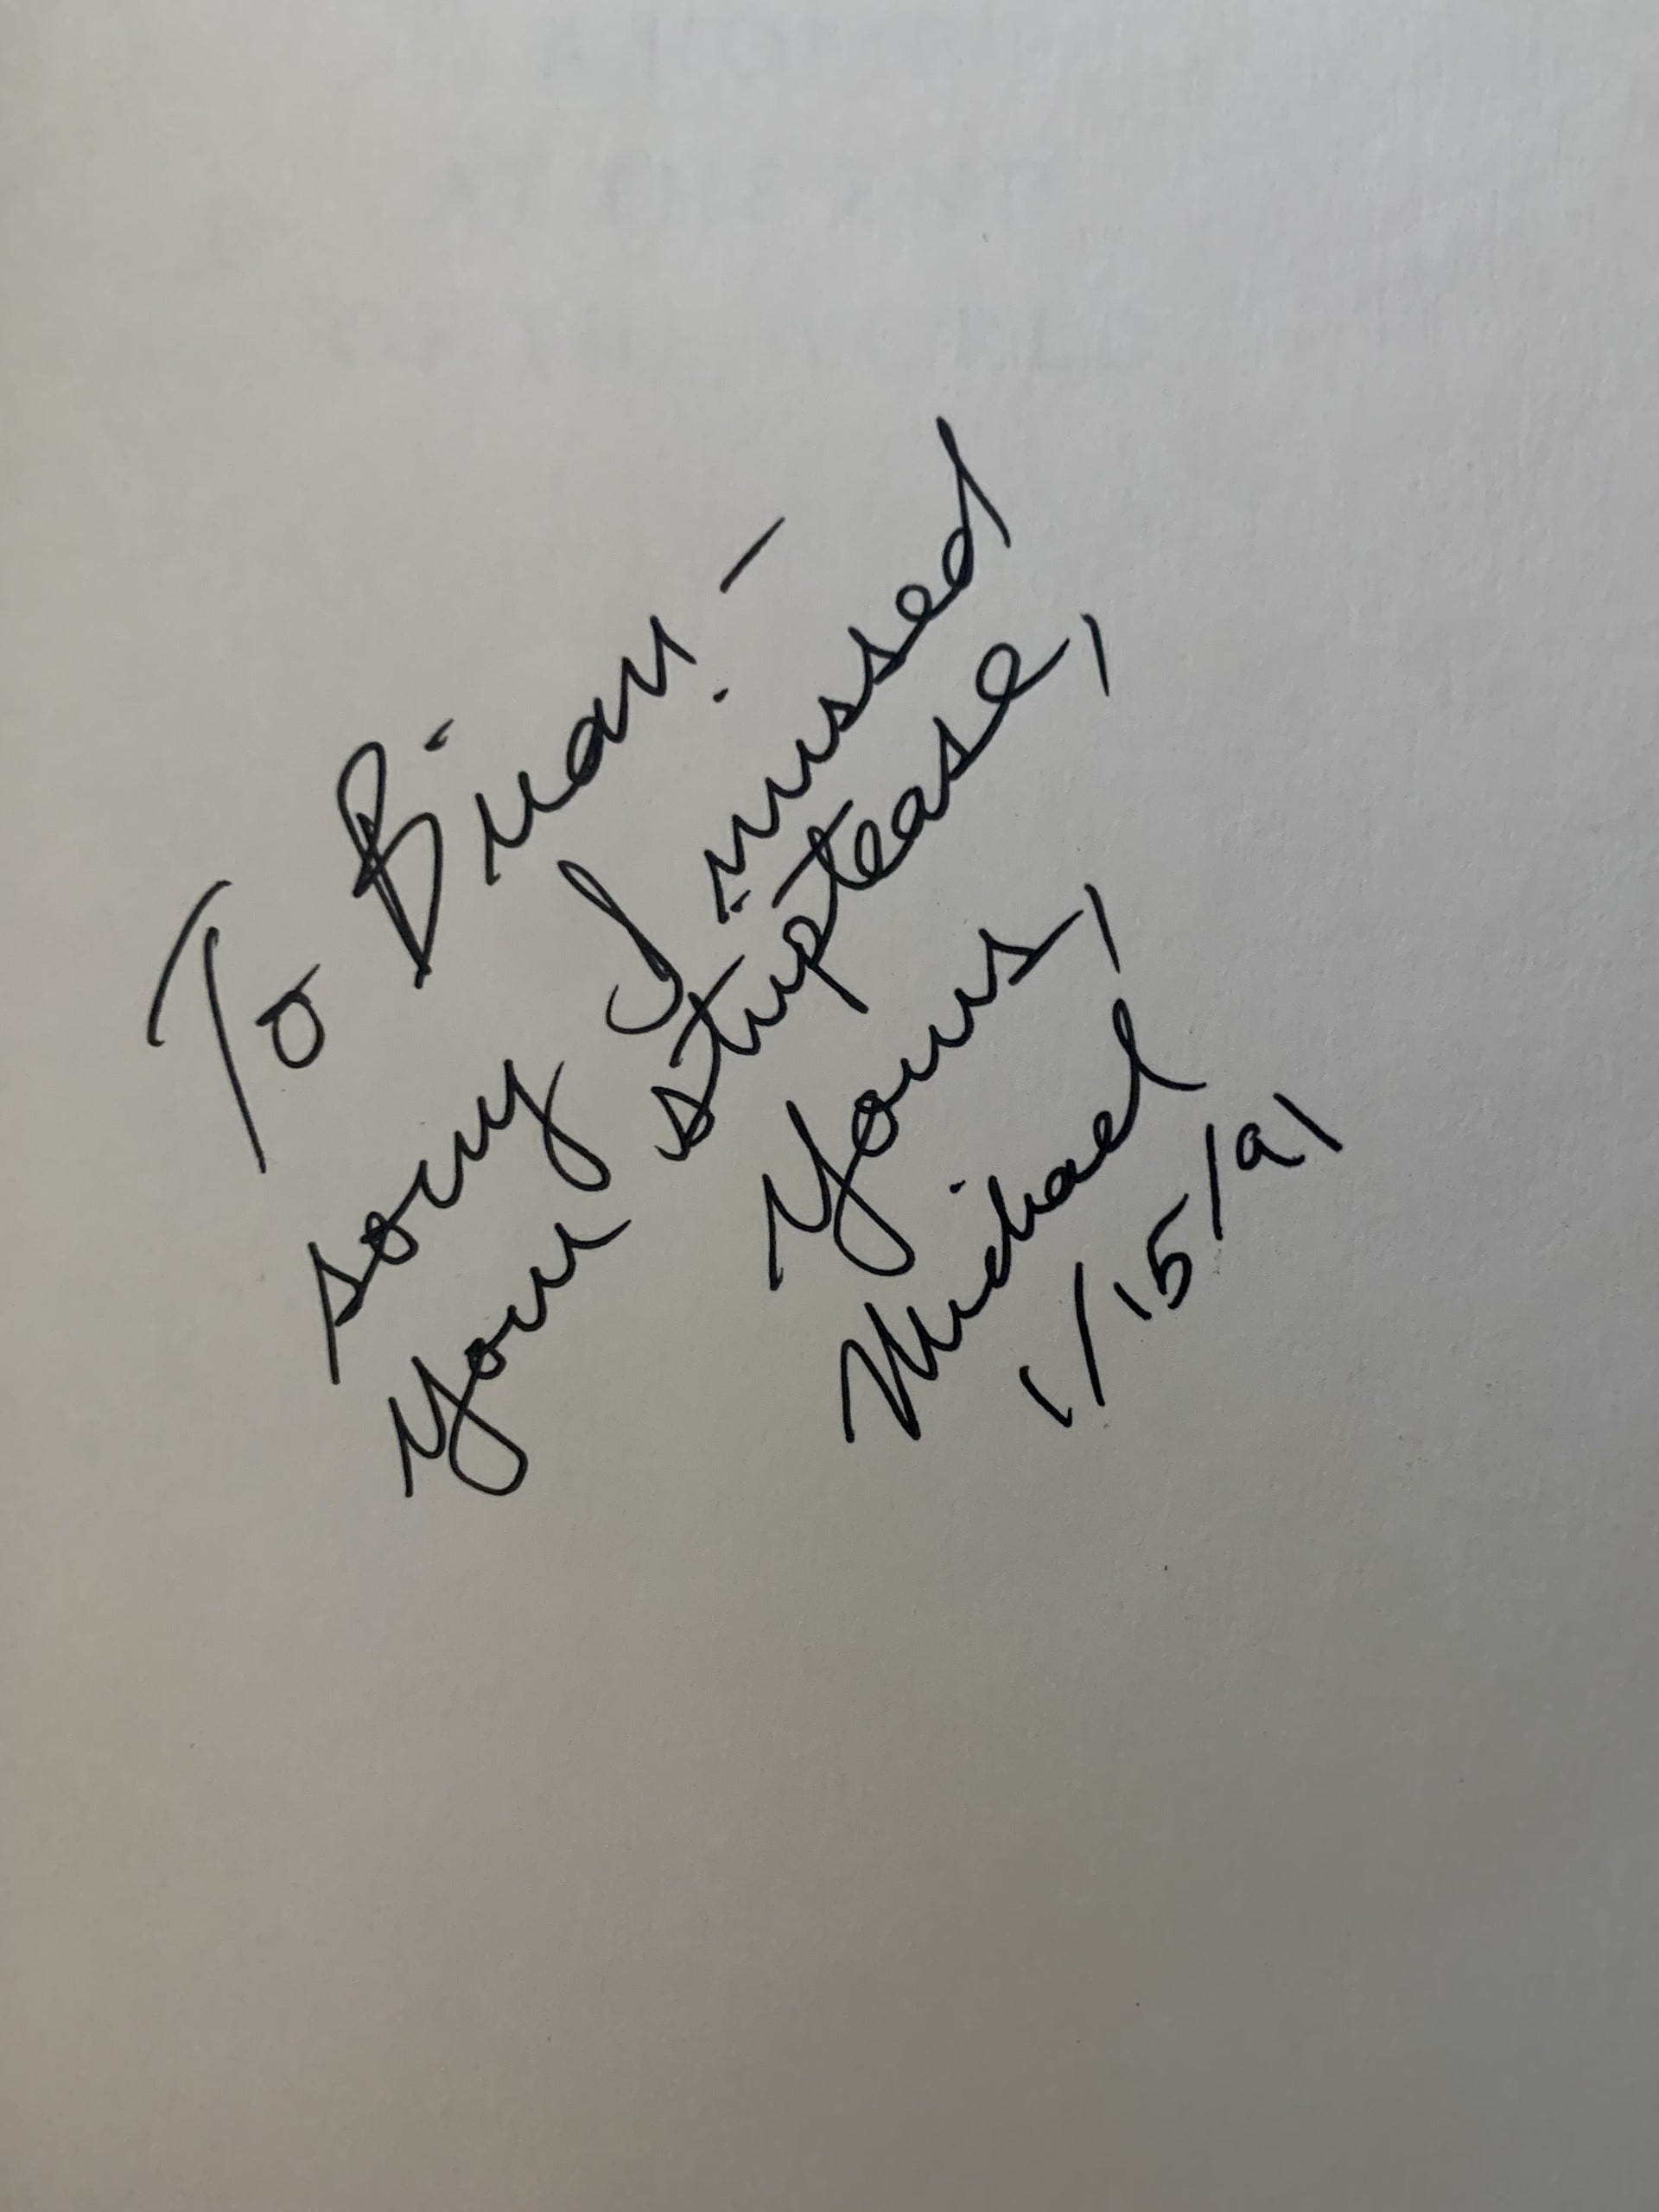 To Brian –
sorry I missed
your striptease,
Yours,
Michael
1/15/91